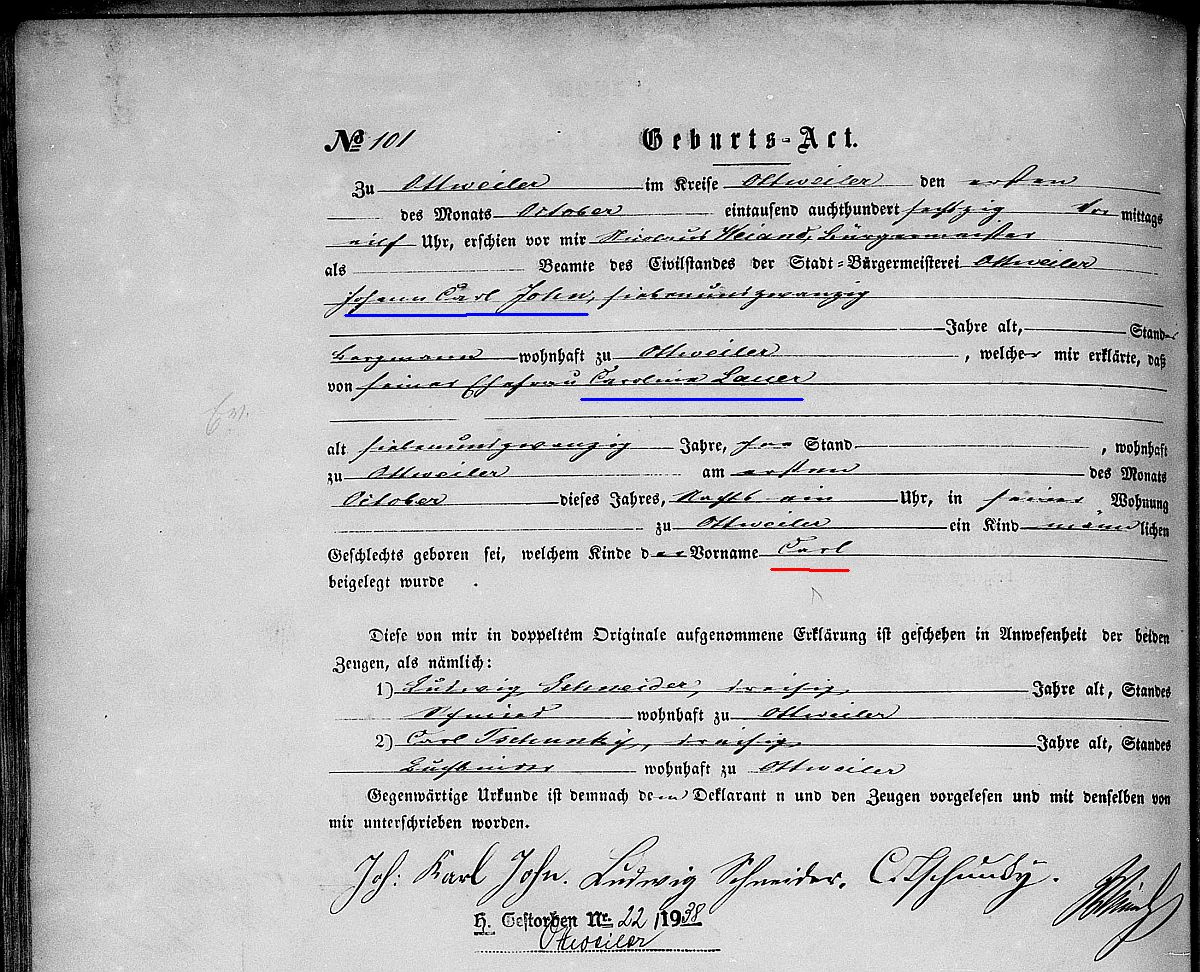 № 101 Geburts-Act.
Zu Ottweiler im Kreise Ottweiler den ersten
des Monats October eintausend auchthundert sechszig Vor mittags
eilf Uhr, erschien vor mir Nicolaus Weiand, Bürgermeister
als Beamte des Civilstandes der Stadt-Bürgermeisterei Ottweiler
Johann Carl John, siebenundzwanzig
Jahre alt, Standes
Bergmann wohnhaft zu Ottweiler, welcher mir erklärte, daß
von seiner Ehefrau Carolina Lauer
Ev.
alt siebenundzwanzig Jahre, Stand, wohnhaft
zu Ottweiler am ersten des Monats
October dieses Jahres, Nachts ein Uhr, in seiner Wohnung
zu Ottweiler ein Kind männlichen
Geschlechts geboren sei, welchem Kinde der Vorname Carl
beigelegt wurde .
Diese von mir in doppeltem Originale aufgenommene Erklärung ist geschehen in Anwesenheit der beiden
Zeugen, als nämlich:
1) Ludwig Schneider, dreißig Jahre alt, Standes
Schmied wohnhaft zu Ottweiler
2) Carl Tschunky, dreißig Jahre alt, Standes
Buchbinder wohnhaft zu Ottweiler
Gegenwärtige Urkunde ist demnach dem Deklarant n und den Zeugen vorgelesen und mit denselben von
mir unterschrieben worden.
Joh: Karl John. Ludwig Schneider. C. Tschunky. Weiand
H. Gestorben Nr. 22 /1938
Ottweiler